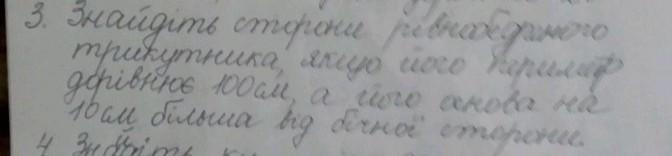 3. Знайдіть сторони рівнобедреного
трикутника, якщо його периметр
дорівнює 100см, а його основа на
10см більша від бічної сторони.
4. Знайдіть